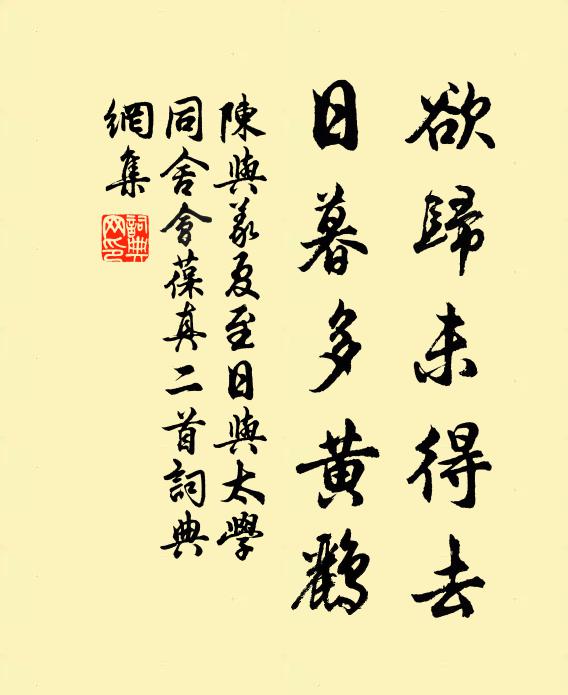 欲歸未得去
日暮多黃鸝
陳與義夏至日與太學
同舍會葆真二首詞典
網集
詞典網印